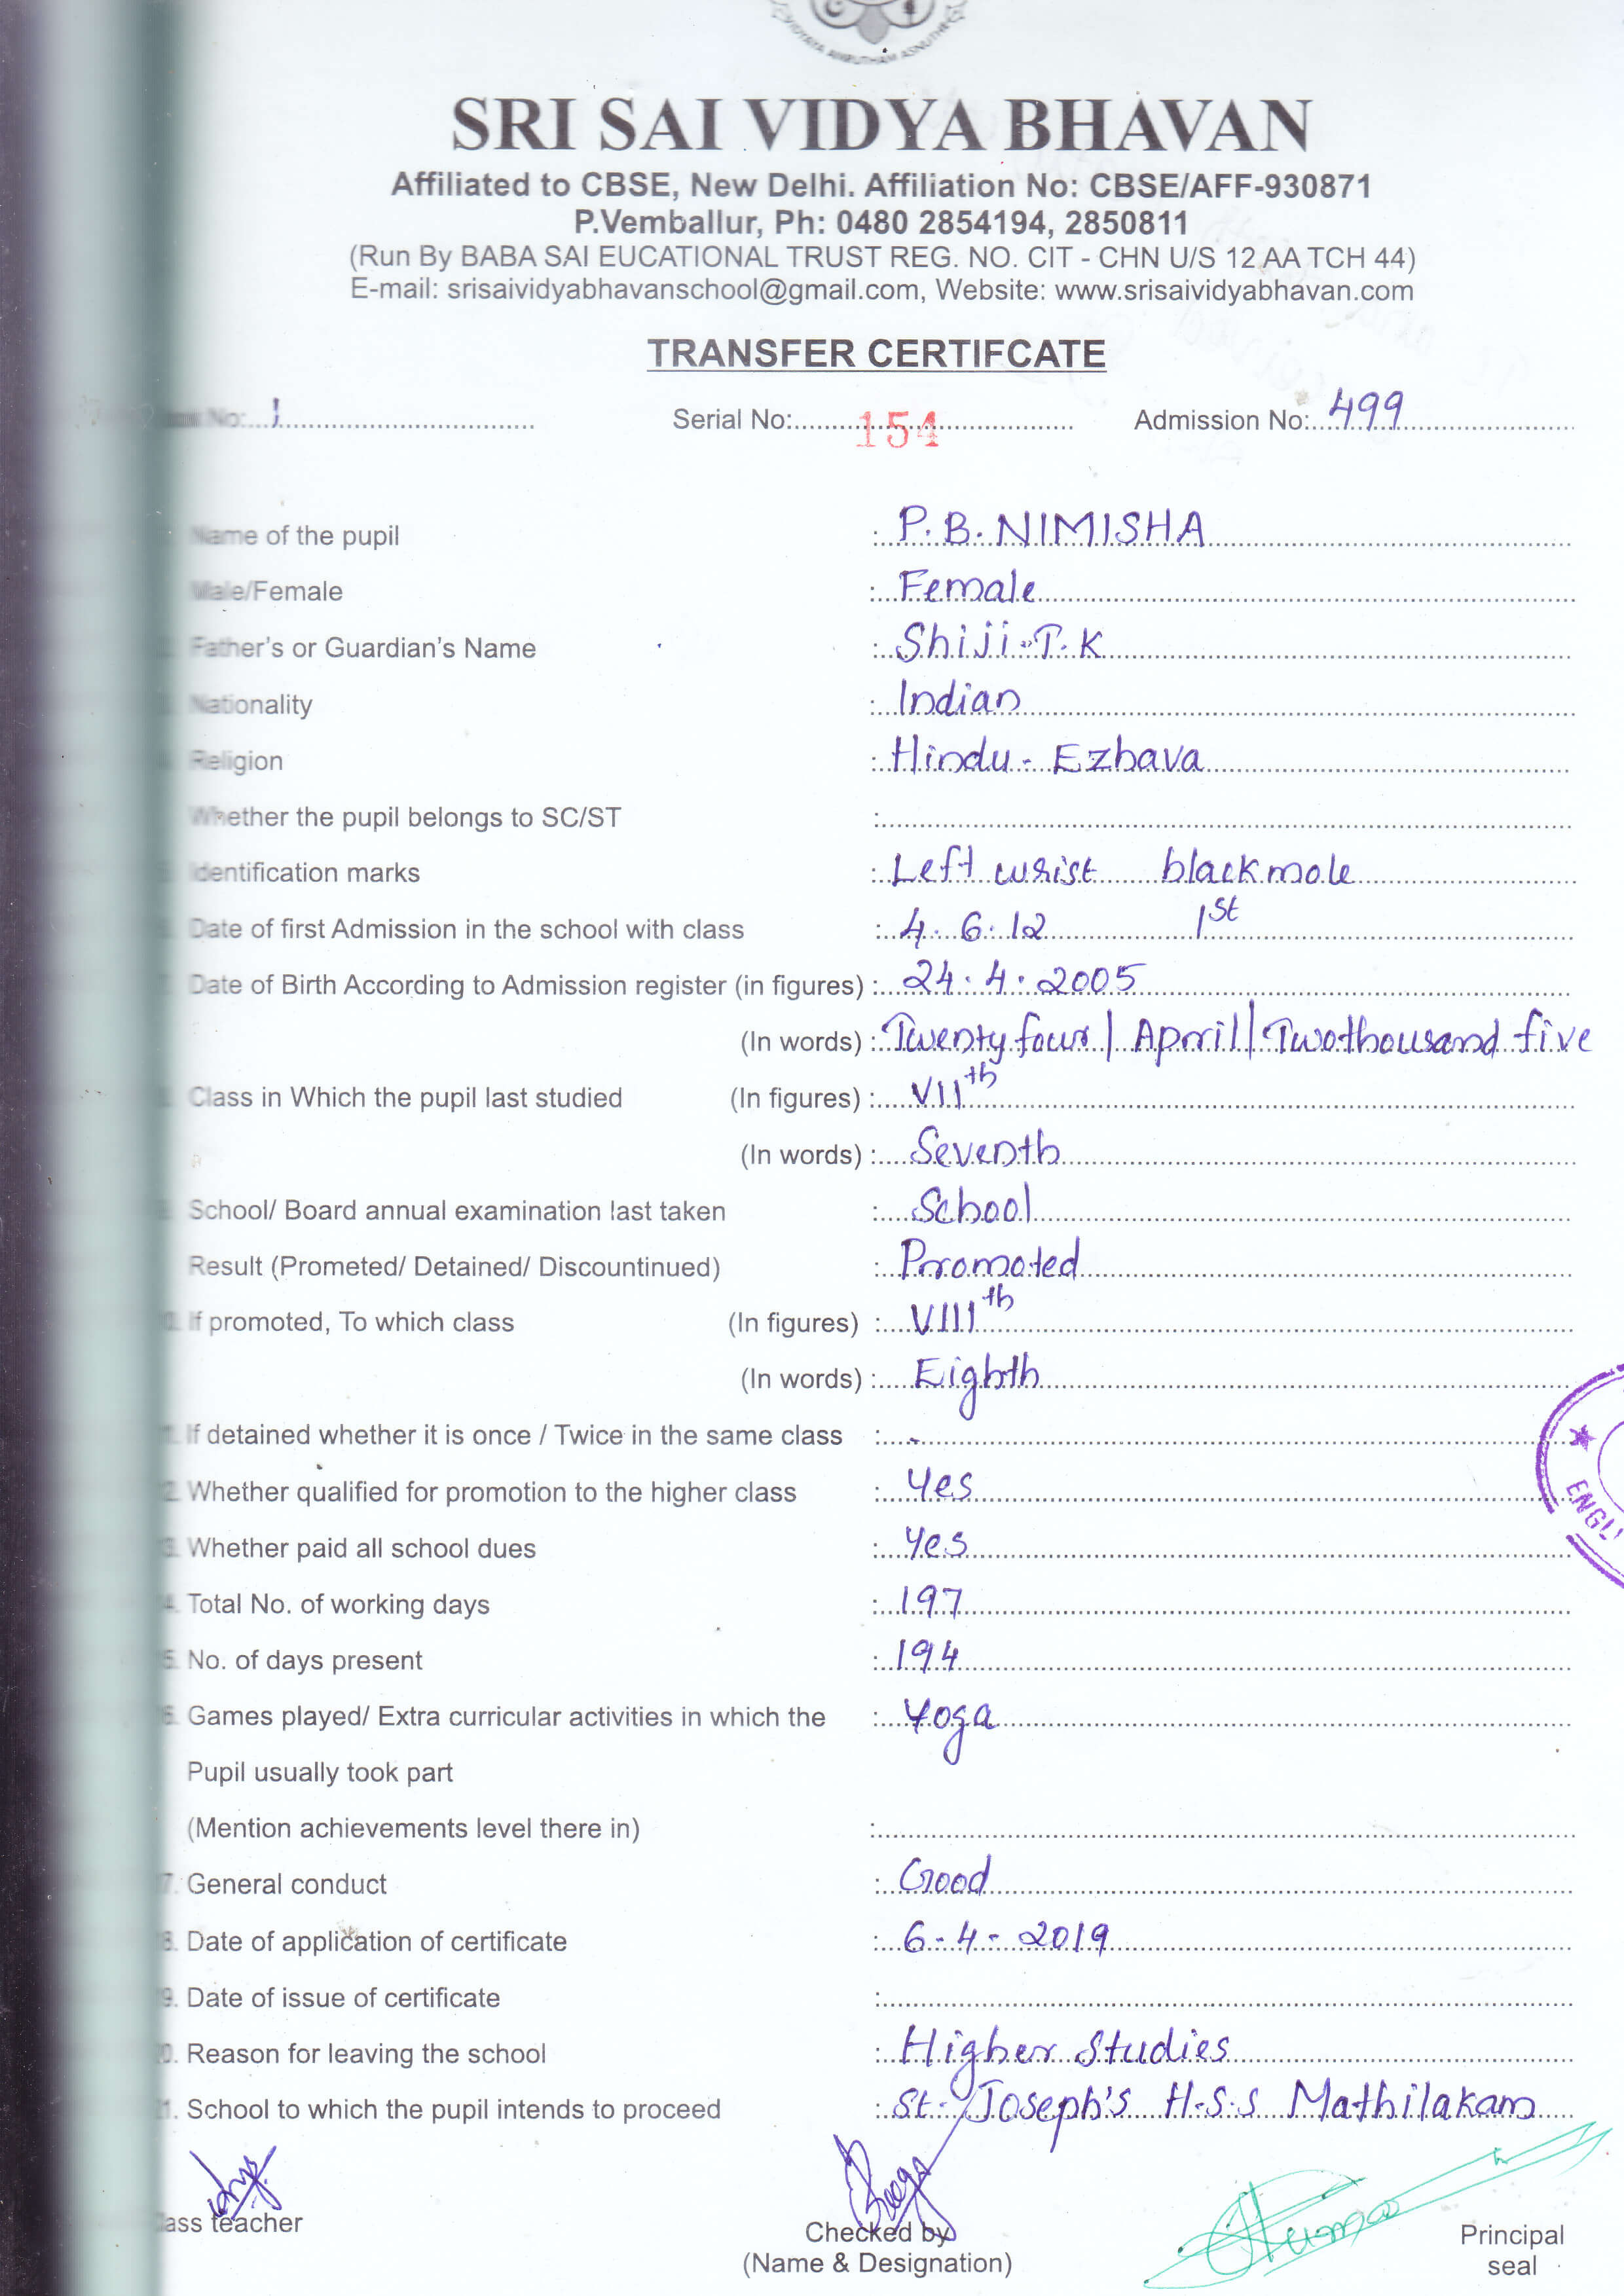 VIDYAYA AMRUTHAM ASNUTHE
SRI SAI VIDYA BHAVAN
Affiliated to CBSE, New Delhi. Affiliation No: CBSE/AFF-930871
P.Vemballur, Ph: 0480 2854194, 2850811
(Run By BABA SAI EUCATIONAL TRUST REG. NO. CIT - CHN U/S 12 AA TCH 44)
E-mail: srisaividyabhavanschool@gmail.com, Website: www.srisaividyabhavan.com
TRANSFER CERTIFCATE
No: 1 Serial No: 154 Admission No: 499
Name of the pupil : P.B. NIMISHA
Male/Female : Female
Father's or Guardian's Name : Shiji T.K
Nationality : Indian
Religion : Hindu - Ezhava
Whether the pupil belongs to SC/ST :
Identification marks : Left wrist blackmole
Date of first Admission in the school with class : 4.6.12 1st
Date of Birth According to Admission register (in figures) : 24.4.2005
(In words) : Twenty four | April | Twothousand five
Class in Which the pupil last studied (In figures) : VIIth
(In words) : Seventh
School/ Board annual examination last taken : School
Result (Prometed/ Detained/ Discountinued) : Promoted
If promoted, To which class (In figures) : VIIIth
(In words) : Eighth
If detained whether it is once / Twice in the same class : -
Whether qualified for promotion to the higher class : Yes
Whether paid all school dues : Yes
Total No. of working days : 197
No. of days present : 194
Games played/ Extra curricular activities in which the : Yoga
Pupil usually took part
(Mention achievements level there in) :
General conduct : Good
Date of application of certificate : 6-4-2019
9. Date of issue of certificate :
Reason for leaving the school : Higher Studies
School to which the pupil intends to proceed : St. Joseph's H.S.S Mathilakam
ENGL
ass teacher
Checked by
(Name & Designation)
Principal
seal